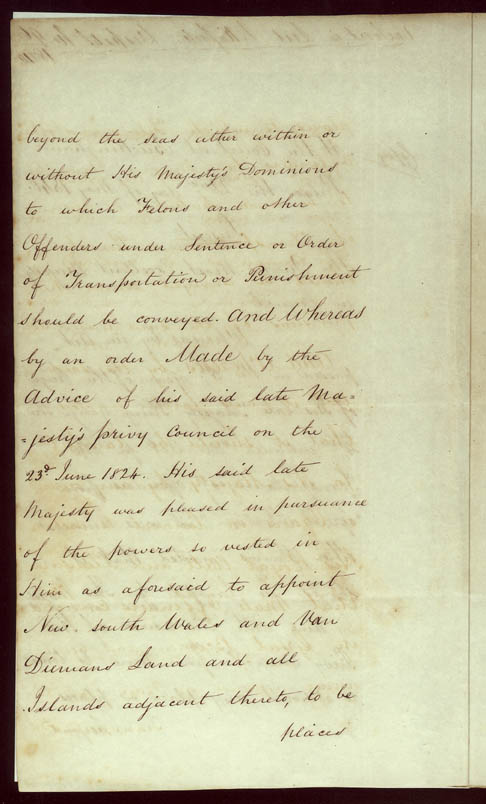 beyond the seas either within or
without His Majesty's Dominions
to which Felons and other
Offenders under Sentence or Order
of Transportation or Punishment
should be conveyed. And Whereas
by an order Made by the
Advice of his said late Ma=
=jesty's privy Council on the
23d. June 1824. His said late
Majesty was pleased in pursuance
of the powers so vested in
Him as aforesaid to appoint
New South Wales and Van
Diemans Land and all
Islands adjacent thereto, to be
places